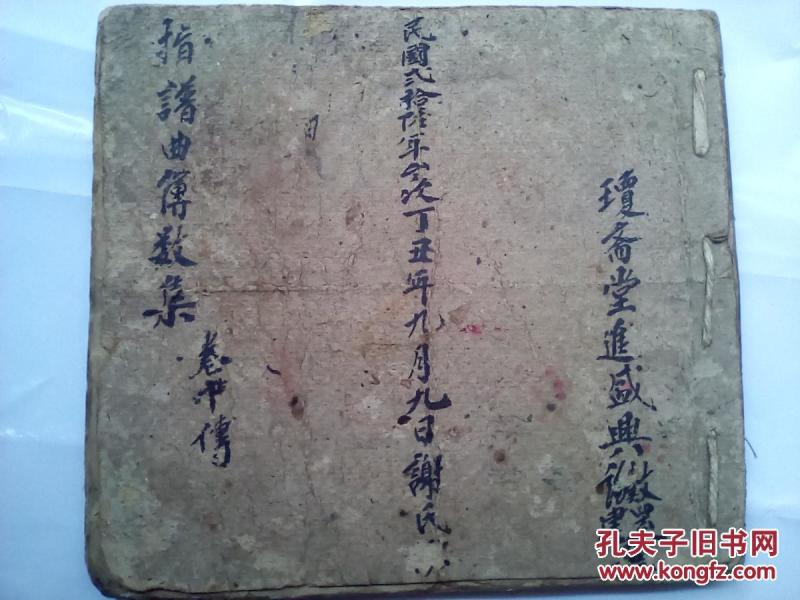 瓊斋堂進盛興
民國弍拾陸年歲次丁丑年九月九日謝氏
指譜曲簿数集
卷中傳
孔夫子旧书网
www.kongfz.com